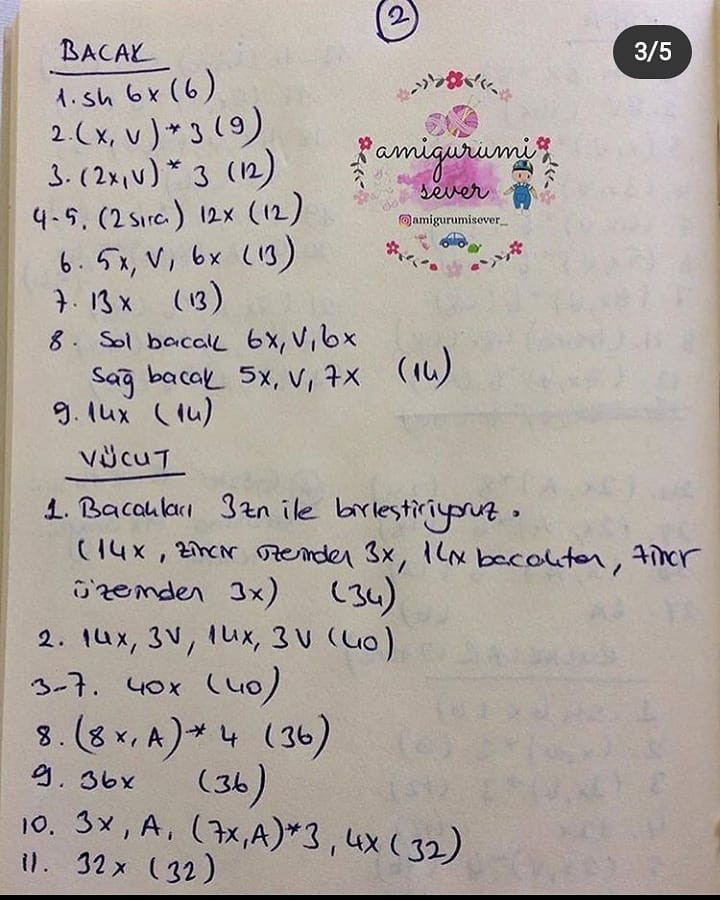 2
3/5
BACAK
1. sh 6x (6)
2. (x, v) * 3 (9)
3. (2x, v) * 3 (12)
4-5. (2 sıra) 12x (12)
6. 5x, v, 6x (13)
7. 13x (13)
8. Sol bacak 6x, v, 6x
Sağ bacak 5x, v, 7x (14)
9. 14x (14)
amigurumi
sever
@amigurumisever_
VÜCUT
1. Bacakları 3zn ile birleştiriyoruz.
(14x, zincir üzerinden 3x, 14x bacaktan, zincir
üzerinden 3x) (34)
2. 14x, 3v, 14x, 3v (40)
3-7. 40x (40)
8. (8x, A) * 4 (36)
9. 36x (36)
10. 3x, A, (7x, A) * 3, 4x (32)
11. 32x (32)